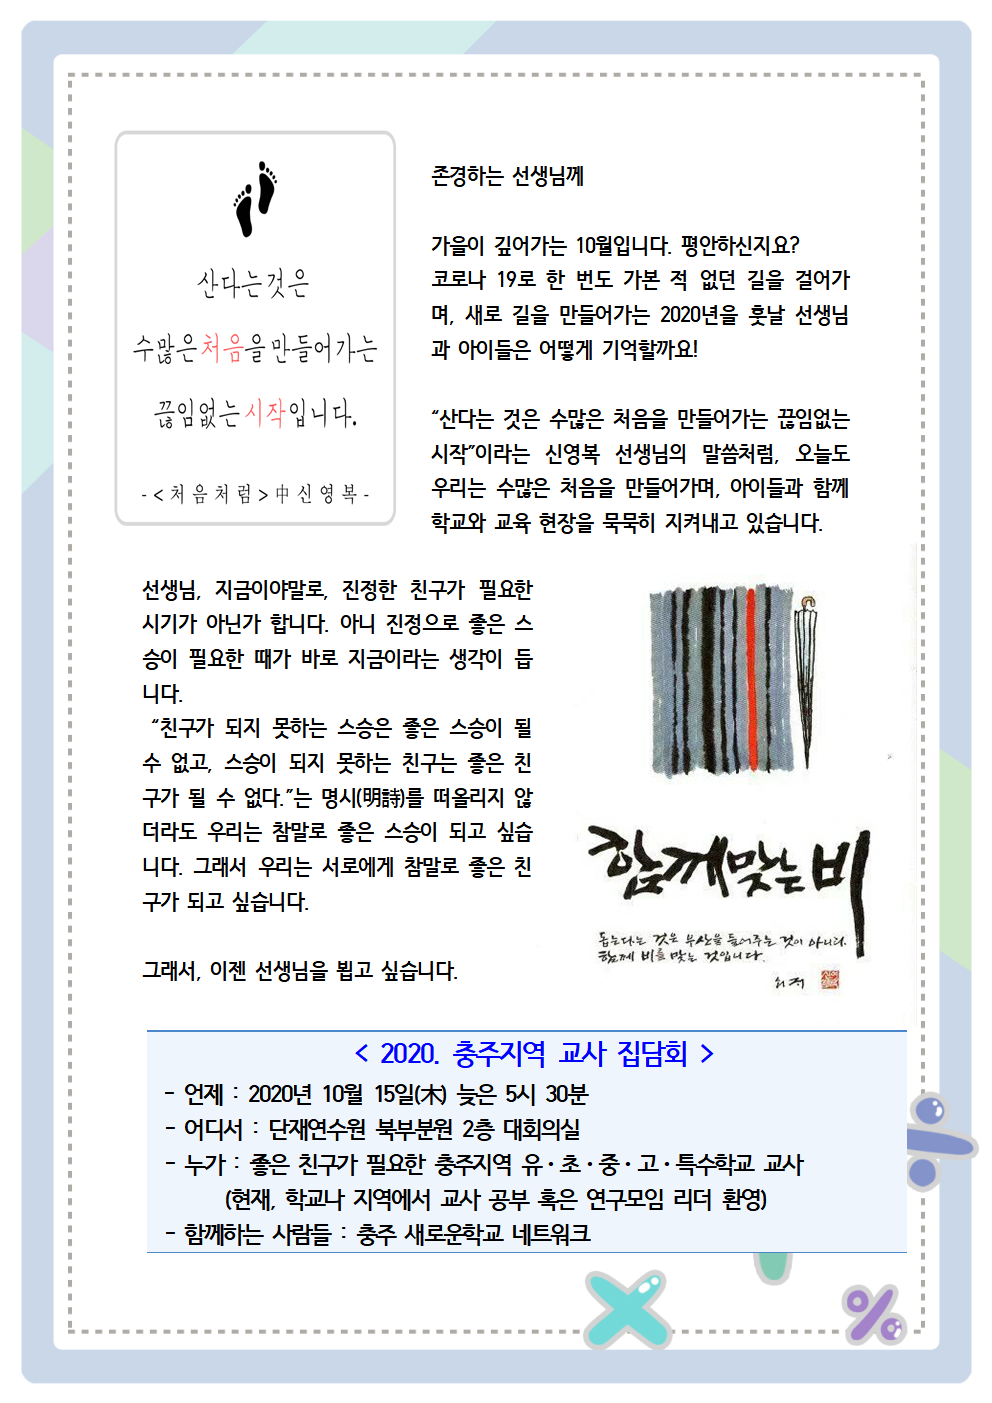 산다는것은
수많은처음을만들어가는
끊임없는시작입니다.
-<처음처럼>中신영복-
존경하는 선생님께
가을이 깊어가는 10월입니다. 평안하신지요?
코로나 19로 한 번도 가본 적 없던 길을 걸어가
며, 새로 길을 만들어가는 2020년을 훗날 선생님
과 아이들은 어떻게 기억할까요!
“산다는 것은 수많은 처음을 만들어가는 끊임없는
시작”이라는 신영복 선생님의 말씀처럼, 오늘도
우리는 수많은 처음을 만들어가며, 아이들과 함께
학교와 교육 현장을 묵묵히 지켜내고 있습니다.
선생님, 지금이야말로, 진정한 친구가 필요한
시기가 아닌가 합니다. 아니 진정으로 좋은 스
승이 필요한 때가 바로 지금이라는 생각이 듭
니다.
“친구가 되지 못하는 스승은 좋은 스승이 될
수 없고, 스승이 되지 못하는 친구는 좋은 친
구가 될 수 없다.”는 명시(明詩)를 떠올리지 않
더라도 우리는 참말로 좋은 스승이 되고 싶습
니다. 그래서 우리는 서로에게 참말로 좋은 친
구가 되고 싶습니다.
그래서, 이젠 선생님을 뵙고 싶습니다.
함께맞는비
돕는다는 것은 우산을 들어주는 것이 아니라
함께 비를 맞는 것입니다.
< 2020. 충주지역 교사 집담회 >
- 언제 : 2020년 10월 15일(木) 늦은 5시 30분
- 어디서 : 단재연수원 북부분원 2층 대회의실
- 누가 : 좋은 친구가 필요한 충주지역 유·초·중·고·특수학교 교사
(현재, 학교나 지역에서 교사 공부 혹은 연구모임 리더 환영)
- 함께하는 사람들 : 충주 새로운학교 네트워크